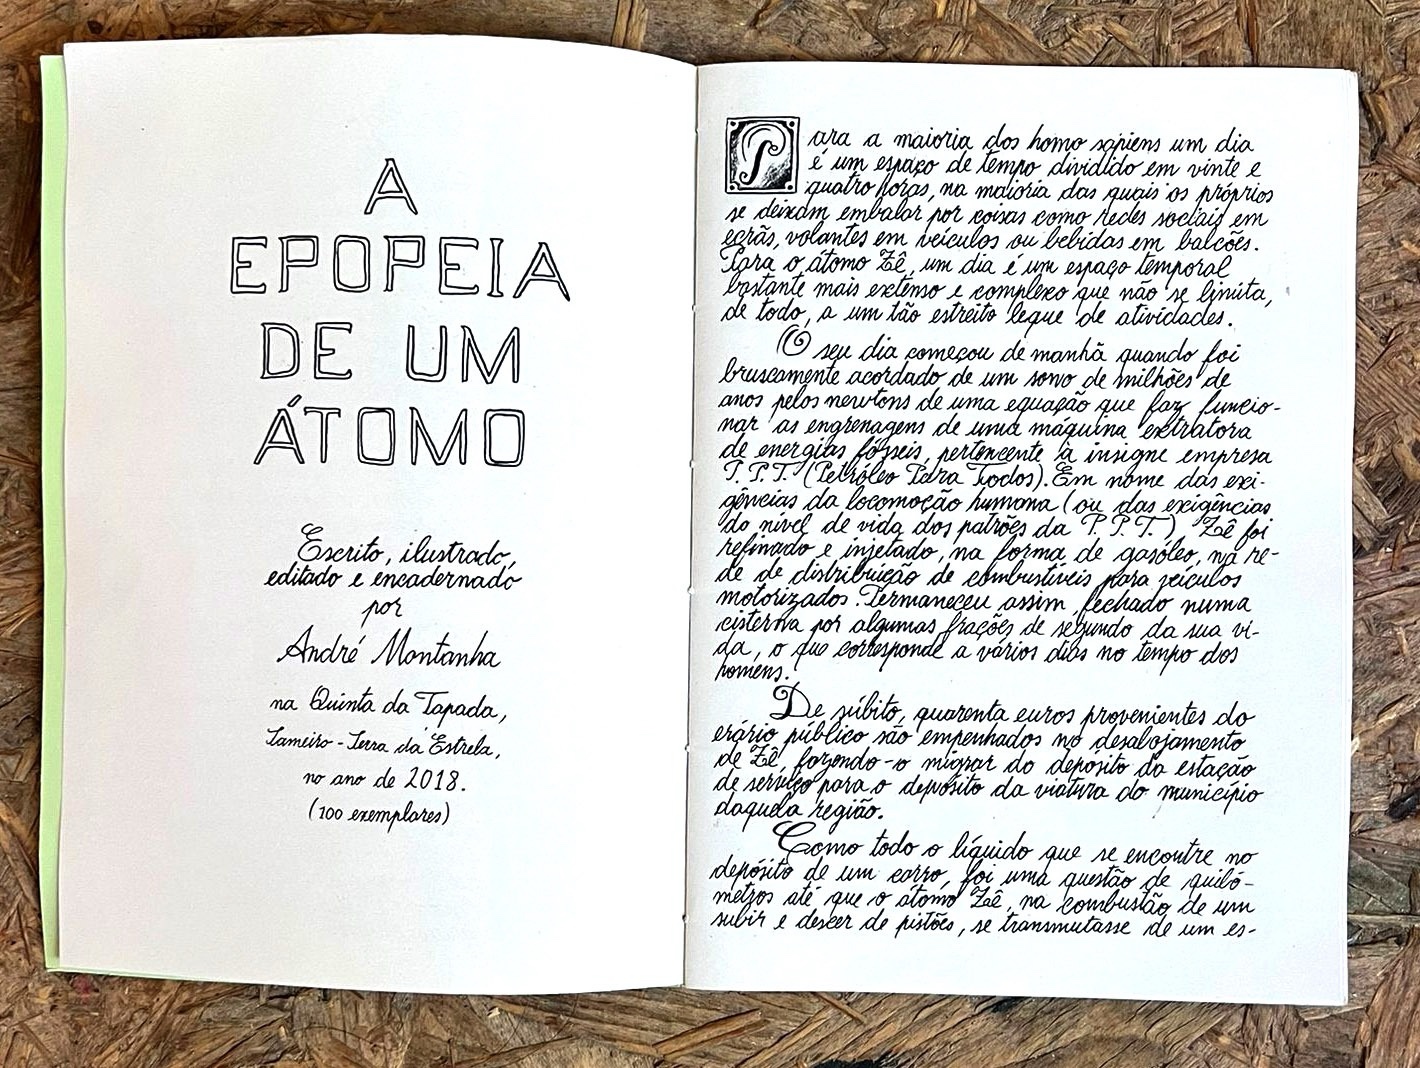 A
EPOPEIA
DE UM
ÁTOMO
Escrito, ilustrado,
editado e encadernado
por
André Montanha
na Quinta da Tapada,
Lameiro - Serra da Estrela,
no ano de 2018.
(100 exemplares)
Para a maioria dos homo sapiens um dia
é um espaço de tempo dividido em vinte e
quatro horas, na maioria das quais os próprios
se deixam embalar por coisas como redes sociais em
ecrãs, volantes em veículos ou bebidas em balcões.
Para o átomo Zê, um dia é um espaço temporal
bastante mais extenso e complexo que não se limita,
de todo, a um tão estreito leque de atividades.
O seu dia começou de manhã quando foi
bruscamente acordado de um sono de milhões de
anos pelos newtons de uma equação que faz funcio-
nar as engrenagens de uma máquina extratora
de energias fósseis, pertencente à insigne empresa
P.P.T. (Petróleo Para Todos). Em nome das exi-
gências da locomoção humana (ou das exigências
do nível de vida dos patrões da P.P.T.), Zê foi
refinado e injetado, na forma de gasóleo, na re-
de de distribuição de combustíveis para veículos
motorizados. Permaneceu assim fechado numa
cisterna por algumas frações de segundo da sua vi-
da, o que corresponde a vários dias no tempo dos
homens.
De súbito, quarenta euros provenientes do
erário público são empenhados no desalojamento
de Zê, fazendo-o migrar do depósito da estação
de serviço para o depósito da viatura do município
daquela região.
Como todo o líquido que se encontre no
depósito de um carro, foi uma questão de quiló-
metros até que o átomo Zê, na combustão de um
subir e descer de pistões, se transmutasse de um es-